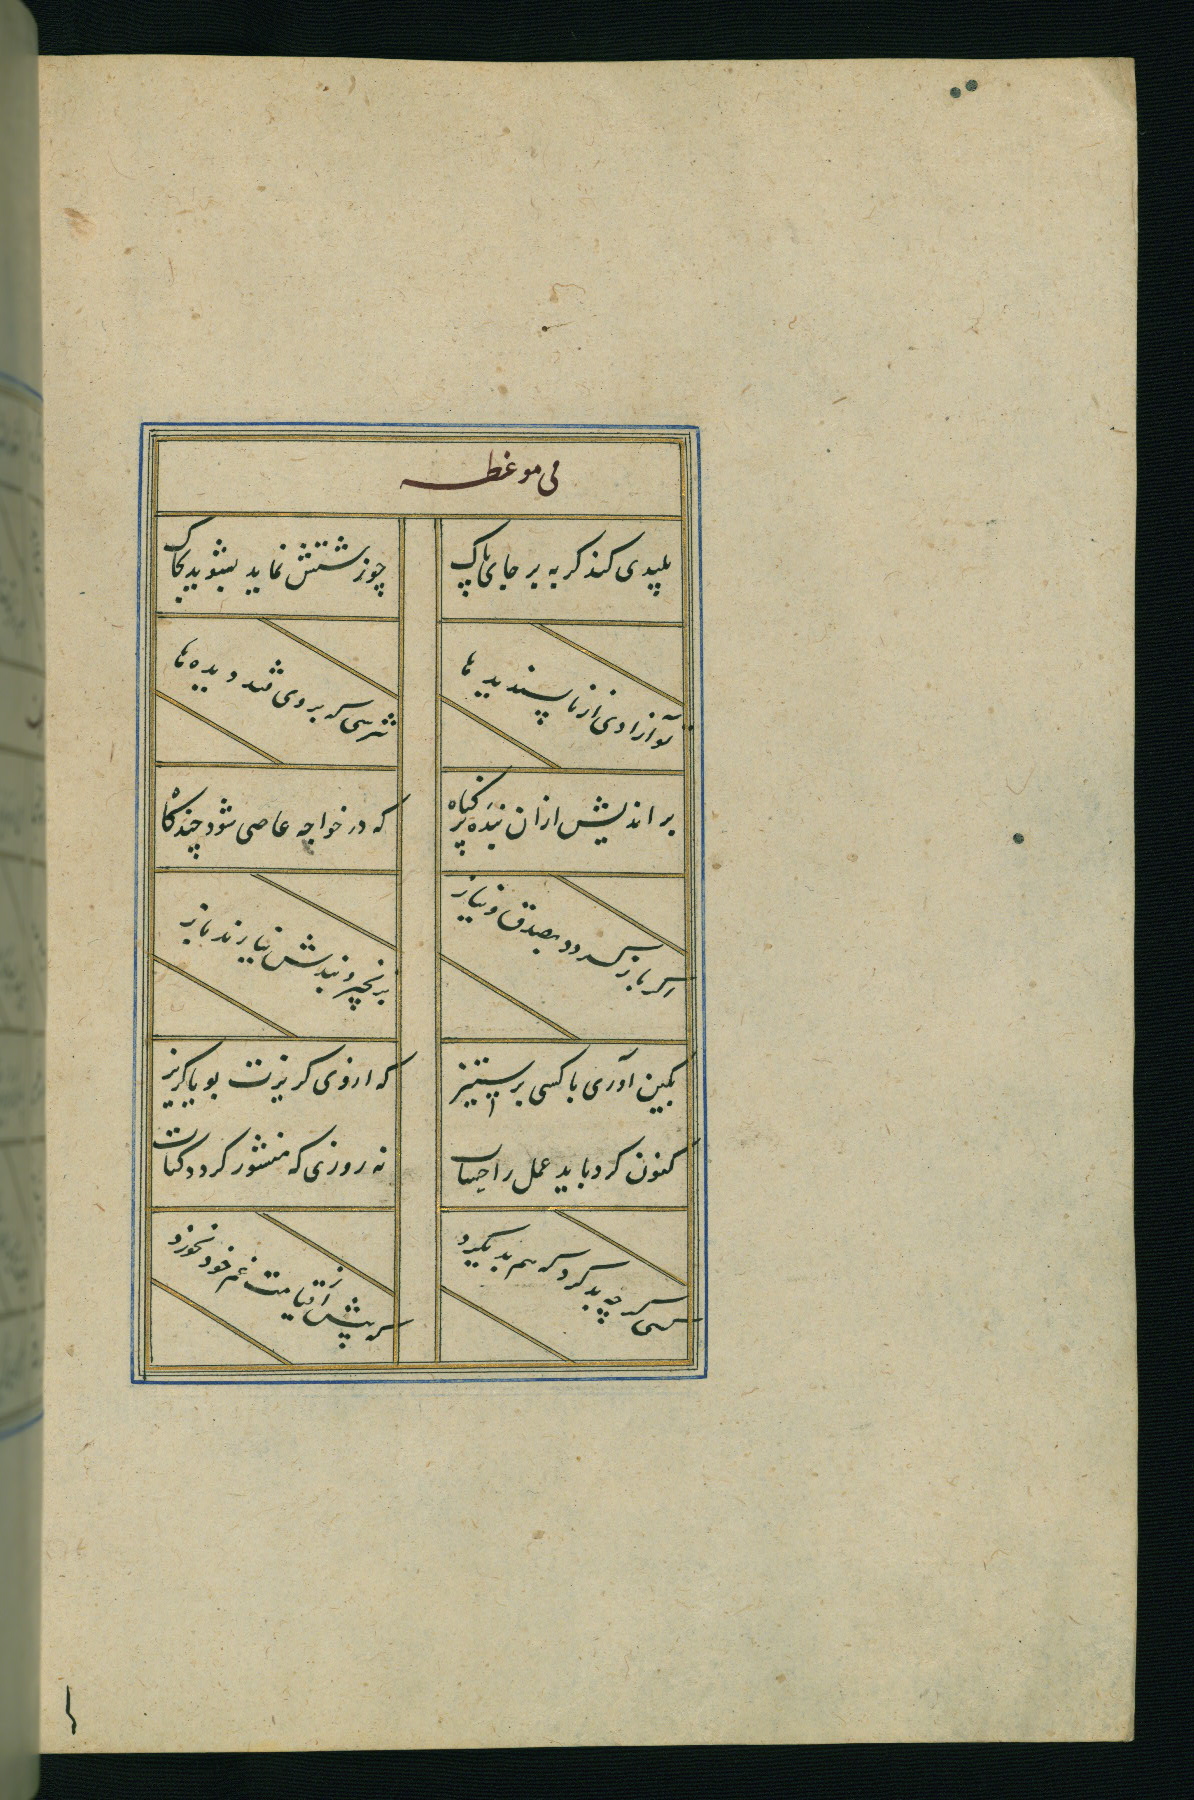 فی موعظه
پلیدی کند گربه بر جای پاک
چو زشتش نماید بپوشد بخاک
تو آزادی از ناپسندیدها
نترسی که بروی فتد دیده‌ها
بر اندیش ازان بنده پر گناه
که در خواجه عاصی شود چندگاه
اگر بازگردد بصدق و نیاز
بزنجیر و بندش نیارند باز
بکین آوری با کسی بر ستیز
که از وی گریزت بود یا گریز
کنون کرد باید عمل را حساب
نه روزی که منشور گردد کتاب
کسی گرچه بد کرد هم بد نکرد
که پیش از قیامت غم خود بخورد